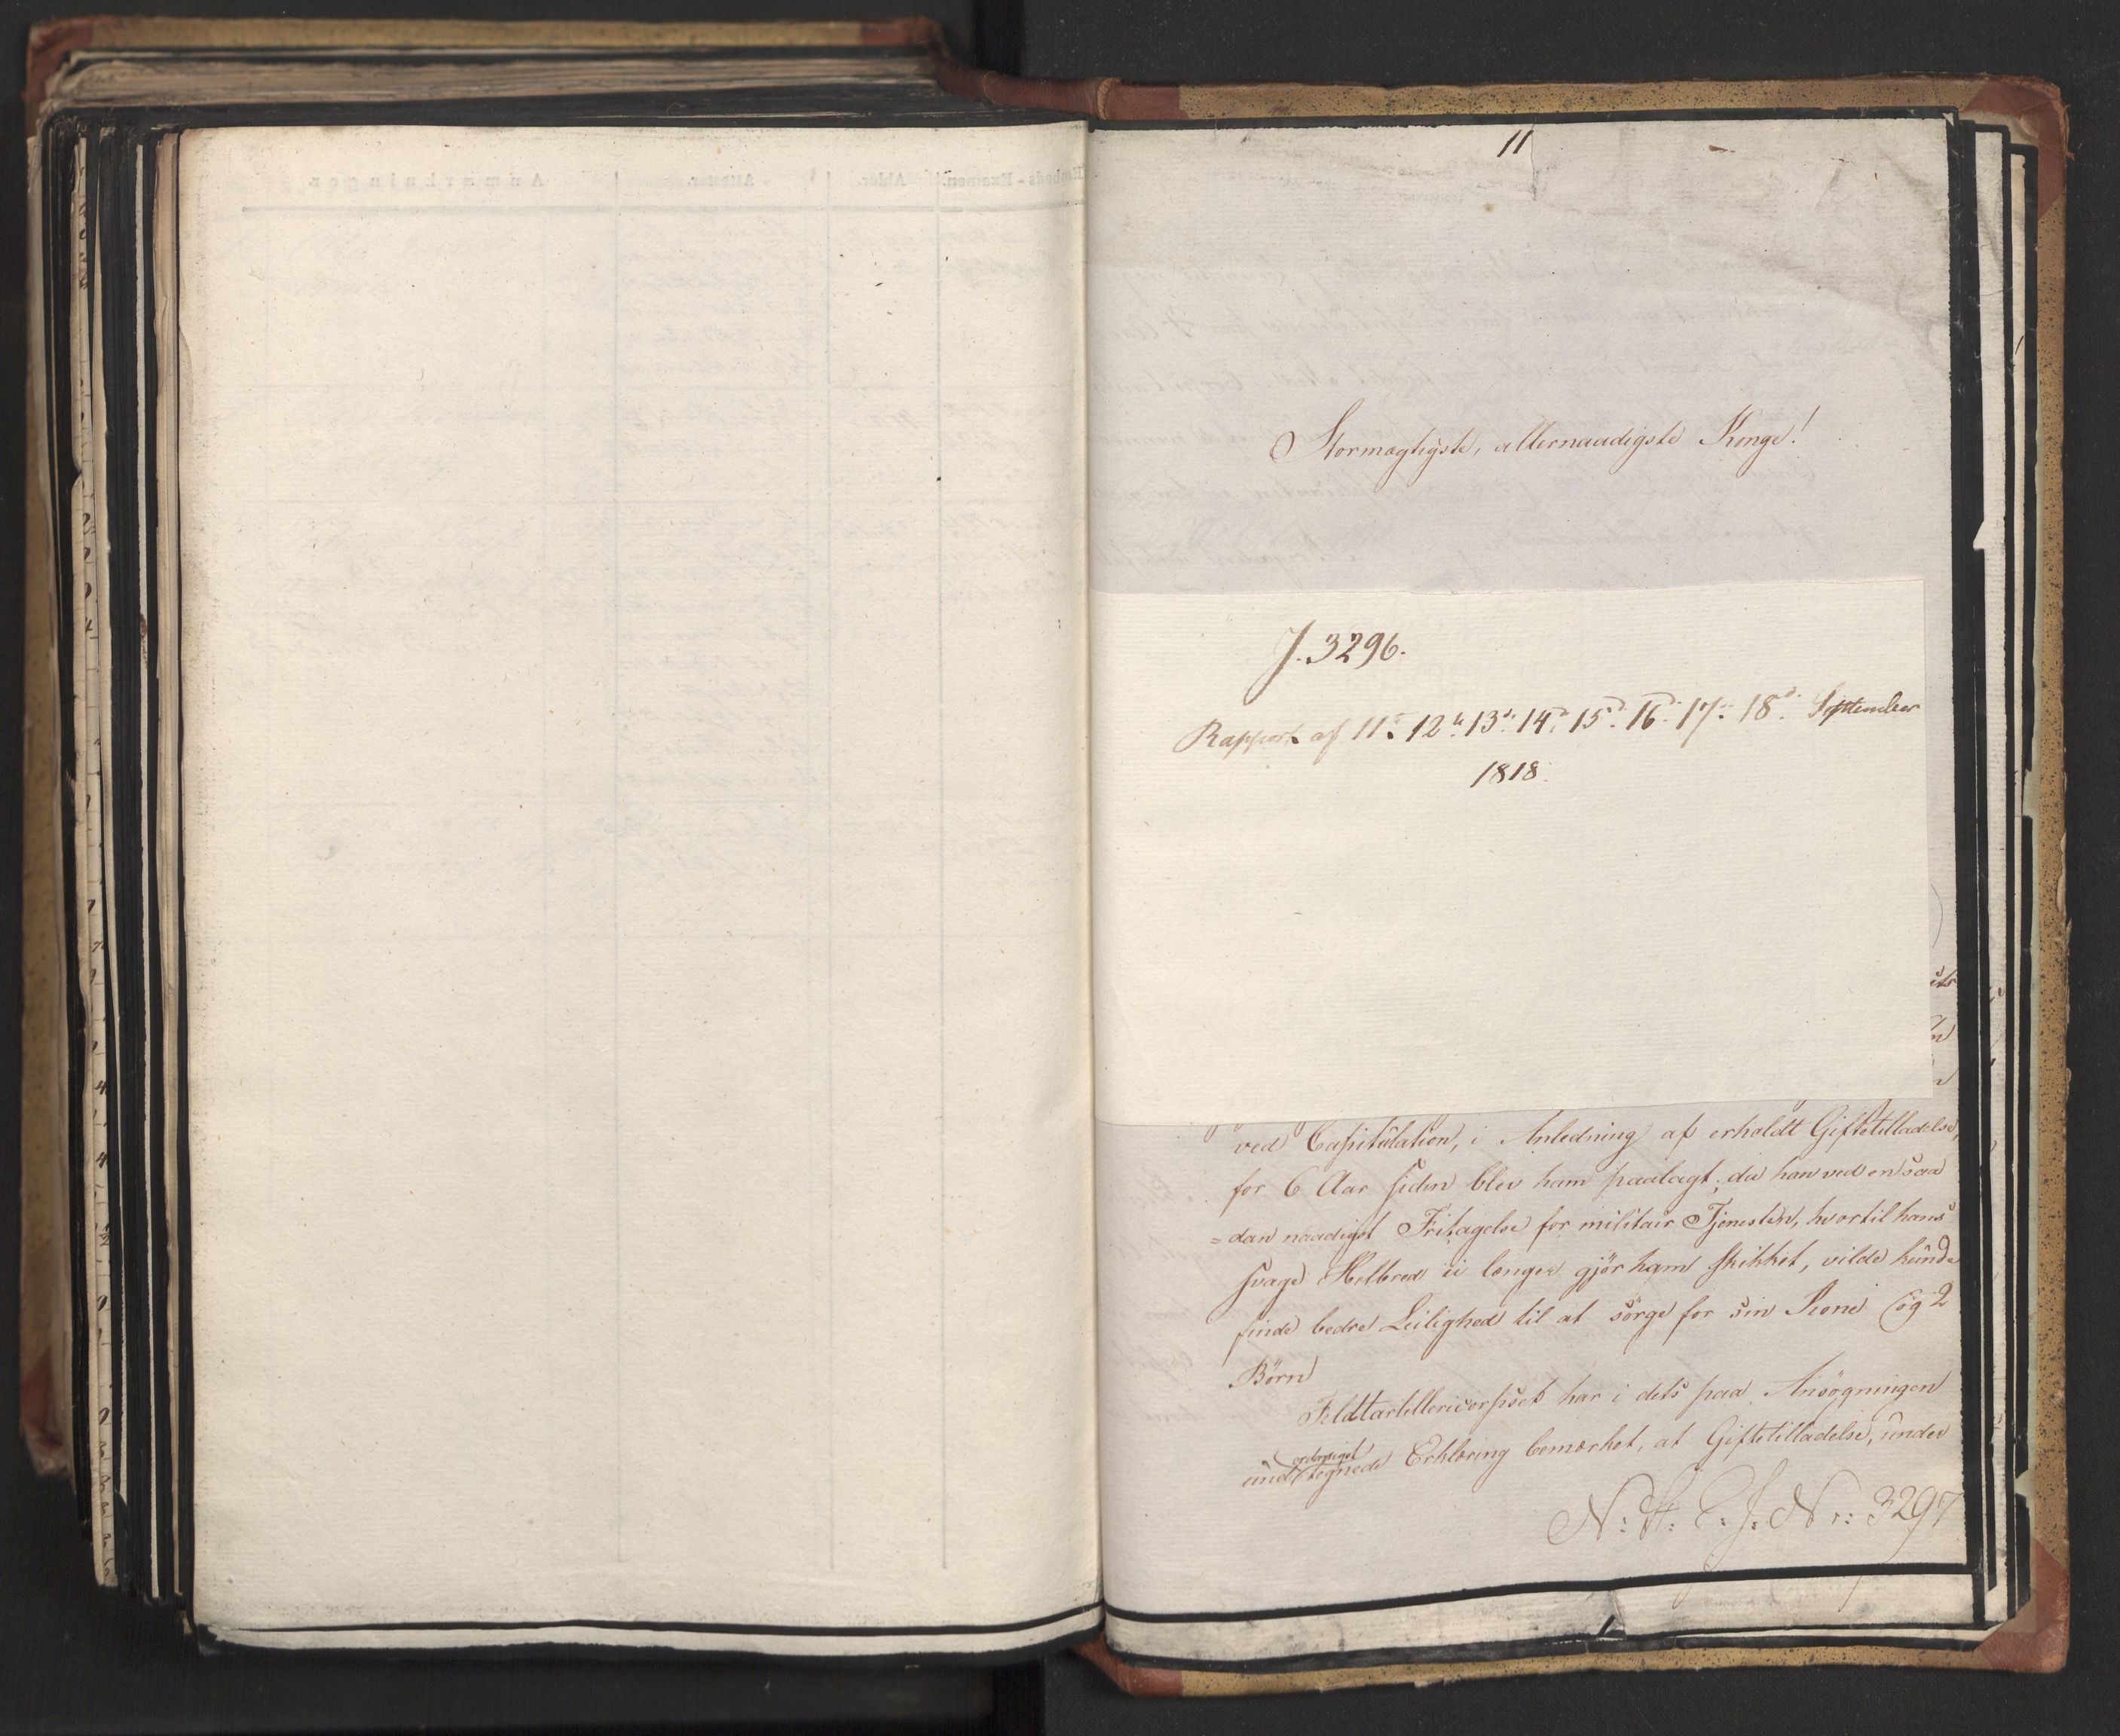 11
Stormægtigste, allernaadigste Konge!
J. 3296.
Rapport af 11. 12. 13. 14. 15. 16. 17. 18. September
1818.
ved Capitulation, i Anledning af erholdt Giftetilladelse,
for 6 Aar siden blev ham paalagt, da han ved en saa
=dan naadigst Fritagelse for militair Tjenesten, hvortil hans
svage Helbred ei længer gjør ham skikket, vilde kunde
finde bedre Leilighed til at sørge for sin Kone og 2
Børn
Feldtartillericorpset har i dets paa Ansøgningen
Erklæring bemærket, at Giftetilladelse, under
N: St: C: J: Nr: 3297